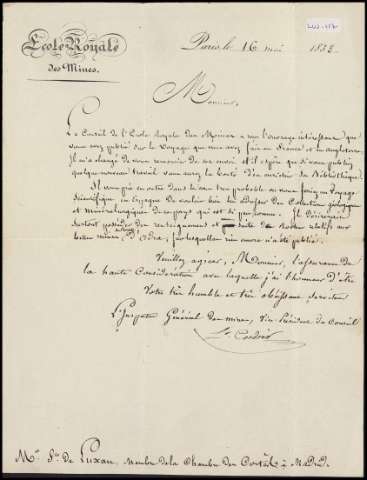 École Royale
des Mines.
Paris le 16 mai 183
Monsieur,
Le Conseil de l'École Royale des Mines a reçu l'ouvrage intéressant que
vous avez publié sur le Voyage que vous avez fait en France et en Angleterre.
Il m'a chargé de vous remercier de cet envoi et il espère que si vous publiez
quelque nouveau travail vous aurez la bonté d'en enrichir sa Bibliothèque.
Il vous prie en outre dans le cas très probable où vous feriez un Voyage
Scientifique en Espagne de vouloir bien lui adresser des Collections géologiques
et minéralurgiques de ce pays qui est si peu connu. Il désirerait
surtout posséder des renseignements et suite de Roches relatifs aux
belles mines d' sur lesquelles rien encore n'a été publié.
Veuillez agréer, Monsieur, l'assurance de
la haute Considération avec laquelle j'ai l'honneur d'être
Votre très humble et très obéissant serviteur
L'Inspecteur Général des mines, Vice Président du Conseil
Cordier
Mr. de Luxan, Membre de la Chambre des Cortès à Madrid.